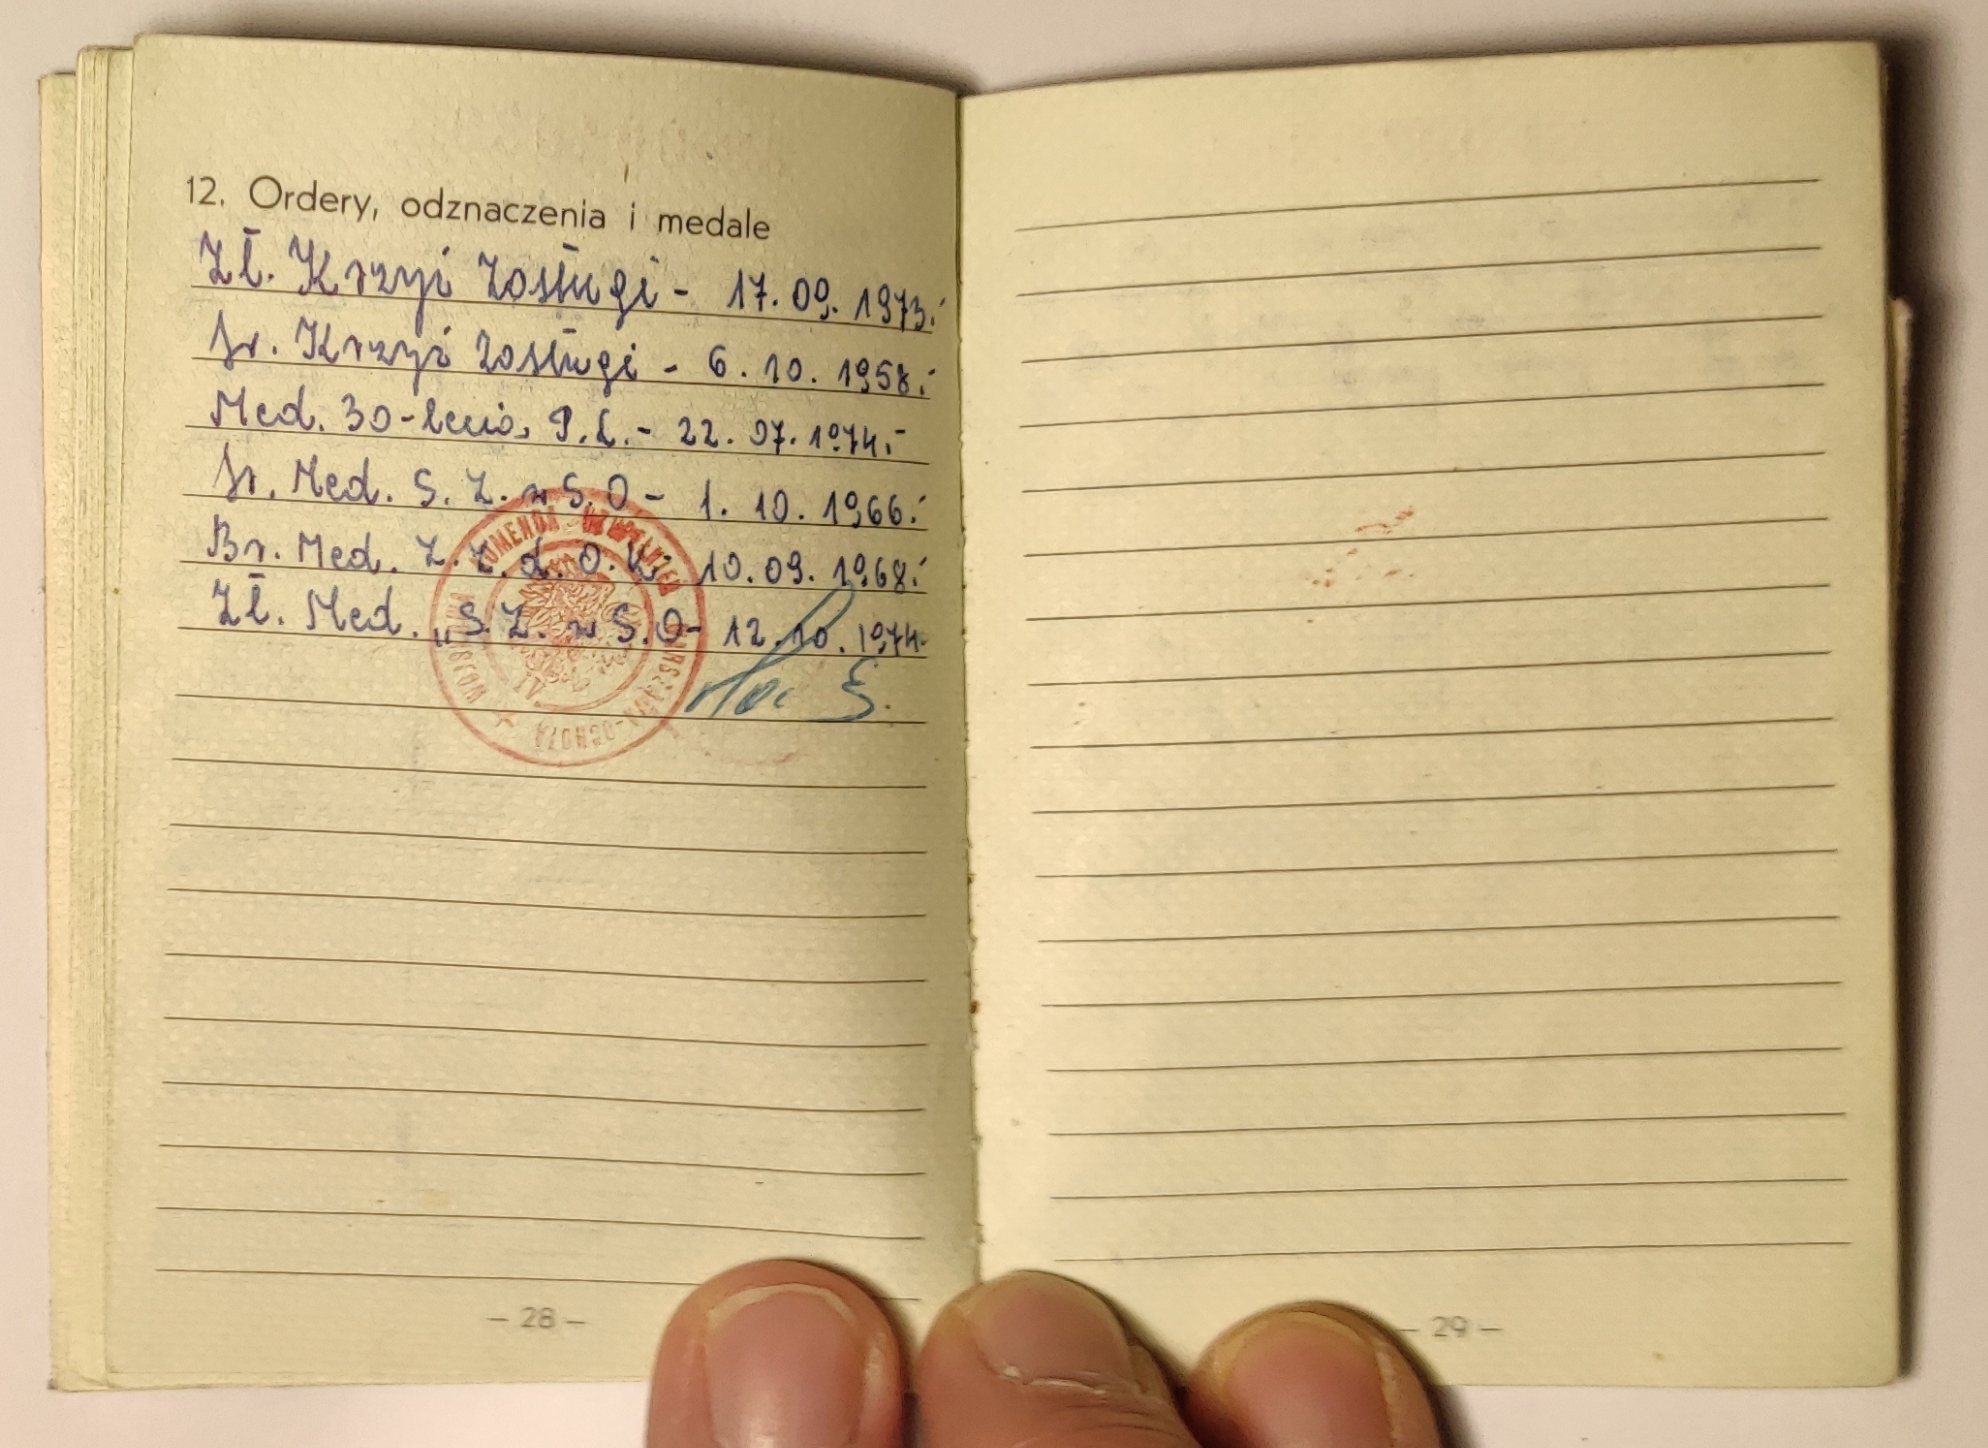 12. Ordery, odznaczenia i medale
Zł. Krzyż Zasługi - 17.09.1973.-
Sr. Krzyż Zasługi - 6.10.1958.-
Med. 30-lecia, P.L. - 22.07.1974.-
Sr. Med. S. Z. w S.O - 1.10.1966.-
Br. Med. Z. Z. d. O. K. 10.09.1968.-
Zł. Med. „S.Z. w S.O - 12.10.1974-
KOMENDA UZUPEŁNIEŃ
WARSZAWA-OCHOTA
WOJSKOWA
– 28 –
– 29 –